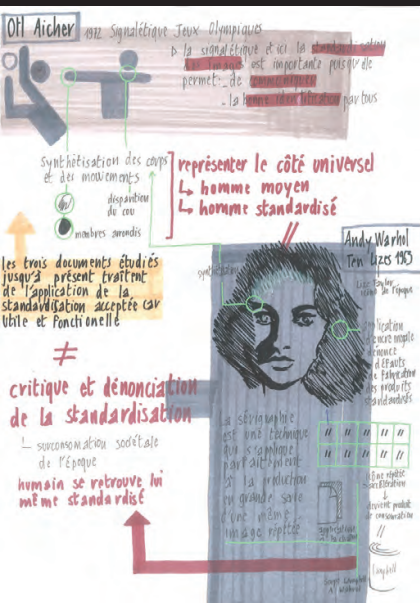 Otl Aicher 1972 Signalétique Jeux Olympiques
↳ la signalétique et ici la standardisation
des images est importante puisqu'elle
permet - de communiquer
- la bonne identification par tous
synthétisation des corps
et des mouvements
disparition
du cou
membres arrondis
représenter le côté universel
↳ homme moyen
↳ homme standardisé
//
les trois documents étudiés
jusqu'à présent traitent
de l'application de la
standardisation acceptée car
utile et fonctionelle
≠
critique et dénonciation
de la standardisation
└ surconsomation sociétale
de l'époque
humain se retrouve lui
même standardisé
Andy Warhol
Ten Lizes 1963
Liz Taylor
icône de l'époque
application
d'encre
dénonce
défauts
de fabrication
des produits
standardisés
la sérigraphie
est une technique
qui s'applique
parfaitement
à la production
en grande
d'une même
image répétée
répétée
↓
devient produit
de consommation
//
Campbell